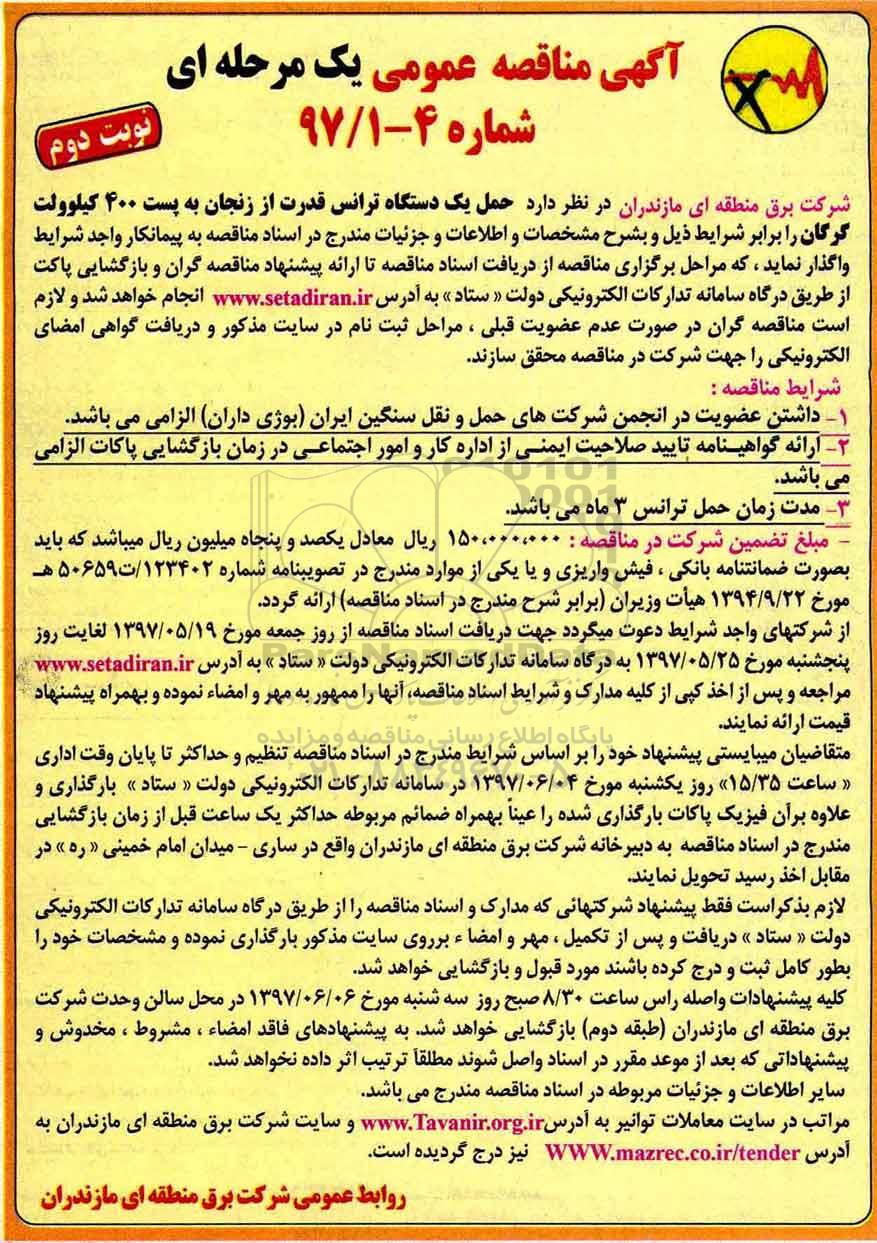 آگهی مناقصه عمومی یک مرحله ای
شماره ۴-۹۷/۱
نوبت دوم
شرکت برق منطقه ای مازندران در نظر دارد حمل یک دستگاه ترانس قدرت از زنجان به پست ۴۰۰ کیلوولت
گرگان را برابر شرایط ذیل و بشرح مشخصات و اطلاعات و جزئیات مندرج در اسناد مناقصه به پیمانکار واجد شرایط
واگذار نماید ، که مراحل برگزاری مناقصه از دریافت اسناد مناقصه تا ارائه پیشنهاد مناقصه گران و بازگشایی پاکت
از طریق درگاه سامانه تدارکات الکترونیکی دولت « ستاد » به آدرس www.setadiran.ir انجام خواهد شد و لازم
است مناقصه گران در صورت عدم عضویت قبلی ، مراحل ثبت نام در سایت مذکور و دریافت گواهی امضای
الکترونیکی را جهت شرکت در مناقصه محقق سازند.
شرایط مناقصه :
۱- داشتن عضویت در انجمن شرکت های حمل و نقل سنگین ایران (بوژی داران) الزامی می باشد.
۲- ارائه گواهینامه تایید صلاحیت ایمنی از اداره کار و امور اجتماعی در زمان بازگشایی پاکات الزامی
می باشد.
۳- مدت زمان حمل ترانس ۳ ماه می باشد.
- مبلغ تضمین شرکت در مناقصه : ۱۵۰،۰۰۰،۰۰۰ ریال معادل یکصد و پنجاه میلیون ریال میباشد که باید
بصورت ضمانتنامه بانکی ، فیش واریزی و یا یکی از موارد مندرج در تصویبنامه شماره ۱۲۳۴۰۲/ت۵۰۶۵۹ هـ
مورخ ۱۳۹۴/۹/۲۲ هیأت وزیران (برابر شرح مندرج در اسناد مناقصه) ارائه گردد.
از شرکتهای واجد شرایط دعوت میگردد جهت دریافت اسناد مناقصه از روز جمعه مورخ ۱۳۹۷/۰۵/۱۹ لغایت روز
پنجشنبه مورخ ۱۳۹۷/۰۵/۲۵ به درگاه سامانه تدارکات الکترونیکی دولت « ستاد » به آدرس www.setadiran.ir
مراجعه و پس از اخذ کپی از کلیه مدارک و شرایط اسناد مناقصه، آنها را ممهور به مهر و امضاء نموده و بهمراه پیشنهاد
قیمت ارائه نمایند.
متقاضیان میبایستی پیشنهاد خود را بر اساس شرایط مندرج در اسناد مناقصه تنظیم و حداکثر تا پایان وقت اداری
« ساعت ۱۵/۳۵» روز یکشنبه مورخ ۱۳۹۷/۰۶/۰۴ در سامانه تدارکات الکترونیکی دولت « ستاد » بارگذاری و
علاوه برآن فیزیک پاکات بارگذاری شده را عیناً بهمراه ضمائم مربوطه حداکثر یک ساعت قبل از زمان بازگشایی
مندرج در اسناد مناقصه به دبیرخانه شرکت برق منطقه ای مازندران واقع در ساری - میدان امام خمینی « ره » در
مقابل اخذ رسید تحویل نمایند.
لازم بذکراست فقط پیشنهاد شرکتهائی که مدارک و اسناد مناقصه را از طریق درگاه سامانه تدارکات الکترونیکی
دولت « ستاد » دریافت و پس از تکمیل ، مهر و امضا ء برروی سایت مذکور بارگذاری نموده و مشخصات خود را
بطور کامل ثبت و درج کرده باشند مورد قبول و بازگشایی خواهد شد.
کلیه پیشنهادات واصله راس ساعت ۸/۳۰ صبح روز سه شنبه مورخ ۱۳۹۷/۰۶/۰۶ در محل سالن وحدت شرکت
برق منطقه ای مازندران (طبقه دوم) بازگشایی خواهد شد. به پیشنهادهای فاقد امضاء ، مشروط ، مخدوش و
پیشنهاداتی که بعد از موعد مقرر در اسناد واصل شوند مطلقاً ترتیب اثر داده نخواهد شد.
سایر اطلاعات و جزئیات مربوطه در اسناد مناقصه مندرج می باشد.
مراتب در سایت معاملات توانیر به آدرس www.Tavanir.org.ir و سایت شرکت برق منطقه ای مازندران به
آدرس WWW.mazrec.co.ir/tender نیز درج گردیده است.
روابط عمومی شرکت برق منطقه ای مازندران
پایگاه اطلاع رسانی مناقصه و مزایده